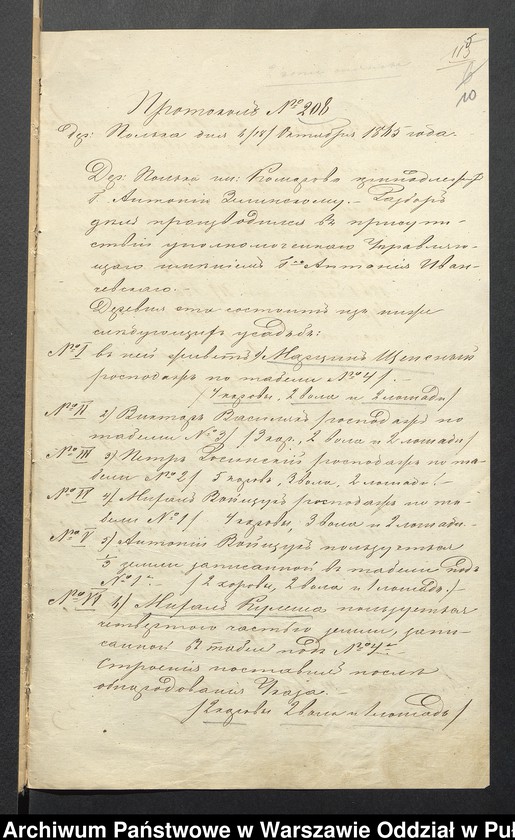 115
10
Протоколъ № 208
Дер: Полька дня 6/18/ Октября 1865 года.
Дер: Полька им: Комарова принадлежитъ
Г. Антонію Зелинскому. — Разборъ
дѣла производился въ присут-
ствіи уполномоченнаго Управляю-
щаго имѣніемъ Г-на Антонія Иван-
чевскаго. —
Деревня эта состоитъ изъ ниже
слѣдующихъ усадьбъ:
№ I въ ней живетъ 1/ Марцинъ Щенсный
господарь по табели № 4/. —
/4 коровы, 2 вола и 2 лошади/
№ II 2/ Викторъ Василюкъ господарь по
табели № 3/ /3 кор., 2 вола и 2 лошади/
№ III 3/ Петръ Росинскій господарь по та-
бели № 2/ 5 коровъ, 3 вола, 2 лошади/ —
№ IV 4/ Михалъ Войцукъ господарь по та-
бели № 1/ 4 коровы, 3 вола и 2 лошади. —
№ V 5/ Антоній Войцукъ пользуется
земли записанной въ табели подъ
№ 1 — /2 коровы, 2 вола и 1 лошадь/. —
№ VI 6/ Михалъ Кулеша пользуется
четвертою частью земли, запи-
санной въ табели подъ № 4
Строенія поставилъ послѣ
обнародованія Указа. —
/2 коровы 2 вола и 1 лошадь/
Archiwum Państwowe w Warszawie Oddział w Puł